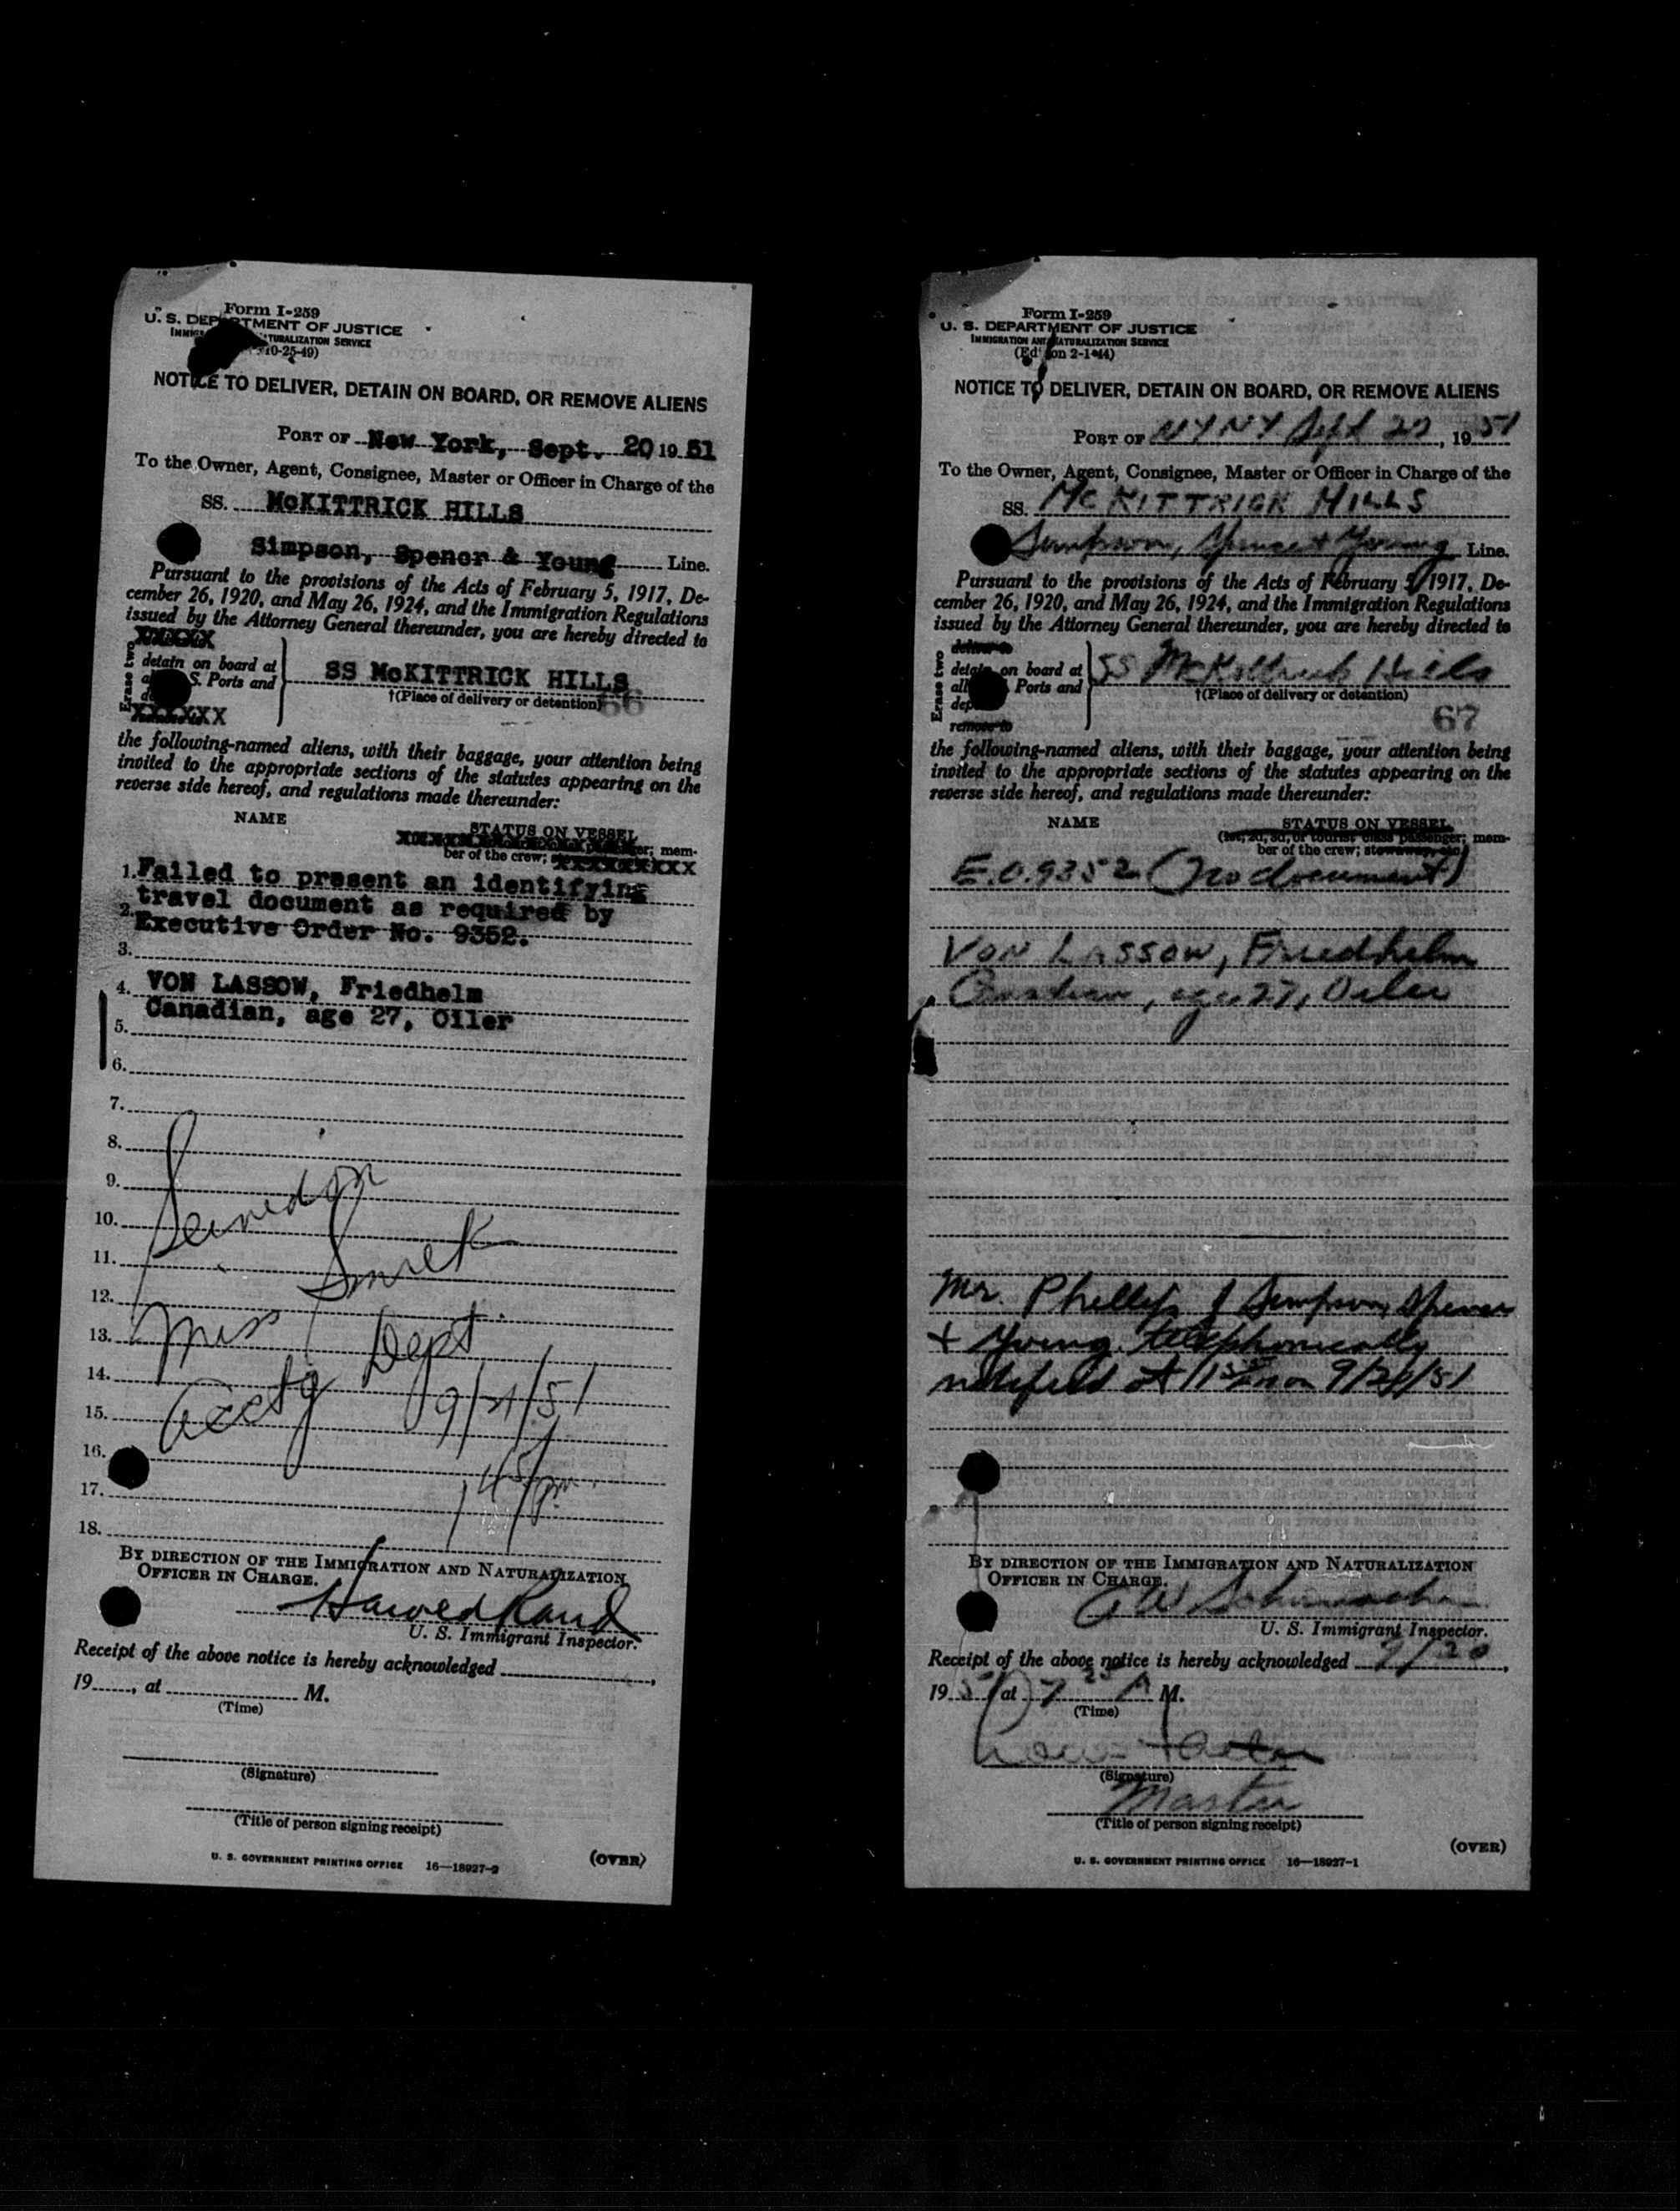 Form I-259
U. S. DEPARTMENT OF JUSTICE
NATURALIZATION SERVICE
10-25-49)
NOTICE TO DELIVER, DETAIN ON BOARD, OR REMOVE ALIENS
PORT OF New York, Sept. 20 19 51
To the Owner, Agent, Consignee, Master or Officer in Charge of the
SS. McKITTRICK HILLS
Simpson, Spencr & Young Line.
Pursuant to the provisions of the Acts of February 5, 1917, De-
cember 26, 1920, and May 26, 1924, and the Immigration Regulations
issued by the Attorney General thereunder, you are hereby directed to
XXXXX
Erase two
detain on board at
S. Ports and
SS McKITTRICK HILLS
†(Place of delivery or detention)
66
XXXXXX
the following-named aliens, with their baggage, your attention being
invited to the appropriate sections of the statutes appearing on the
reverse side hereof, and regulations made thereunder:
NAME
STATUS ON VESSEL
mem-
ber of the crew;
1. Failed to present an identifying
travel document as required by
2. Executive Order No. 9352.
3.
4. VON LASSOW, Friedhelm
Canadian, age 27, Oiler
5.
6.
7.
8.
9.
10.
11.
12.
13. Miss
Dept.
14.
15.
9/21/51
16.
1 45/pm.
17.
18.
BY DIRECTION OF THE IMMIGRATION AND NATURALIZATION
OFFICER IN CHARGE.
Harold Rand
U. S. Immigrant Inspector.
Receipt of the above notice is hereby acknowledged
19......, at .................. M.
(Time)
(Signature)
(Title of person signing receipt)
U. S. GOVERNMENT PRINTING OFFICE 16—18927-2
(OVER)
Form I-259
U. S. DEPARTMENT OF JUSTICE
IMMIGRATION AND NATURALIZATION SERVICE
(Edition 2-1-44)
NOTICE TO DELIVER, DETAIN ON BOARD, OR REMOVE ALIENS
PORT OF NY NY Sept 20, 19 51
To the Owner, Agent, Consignee, Master or Officer in Charge of the
SS. MCKITTRICK HILLS
Simpson, Spence & Young Line.
Pursuant to the provisions of the Acts of February 5, 1917, De-
cember 26, 1920, and May 26, 1924, and the Immigration Regulations
issued by the Attorney General thereunder, you are hereby directed to
deliver to
Erase two
detain on board at
all Ports and
dep
SS McKittrick Hills
†(Place of delivery or detention)
67
remove to
the following-named aliens, with their baggage, your attention being
invited to the appropriate sections of the statutes appearing on the
reverse side hereof, and regulations made thereunder:
NAME
STATUS ON VESSEL
(1st, 2d, 3d, or tourist class passenger; mem-
ber of the crew; stowaway, etc.)
E.O. 9352 (No document)
VON LASSOW, Friedhelm
Canadian, age 27, Oiler
Mr. Phillips of Simpson, Spence
& Young, telephonically
notified at on 9/20/51
BY DIRECTION OF THE IMMIGRATION AND NATURALIZATION
OFFICER IN CHARGE.
U. S. Immigrant Inspector.
Receipt of the above notice is hereby acknowledged 9/20,
19 51 at 7 A M.
(Time)
(Signature)
Master
(Title of person signing receipt)
U. S. GOVERNMENT PRINTING OFFICE 16—18927-1
(OVER)